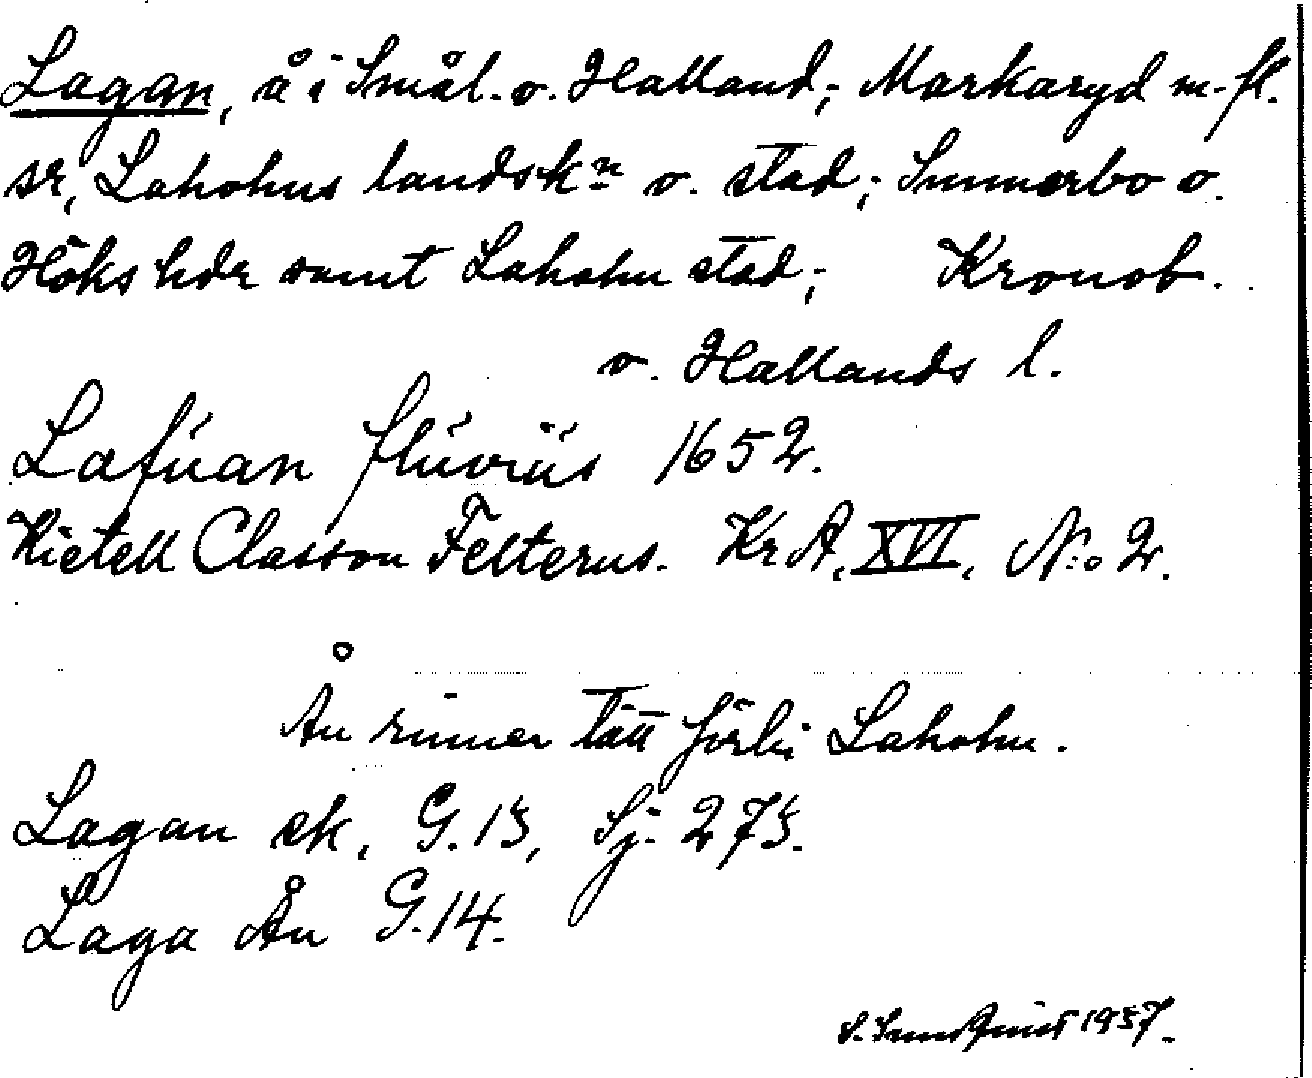 Lagan, å i Smål. o. Halland; Markaryd m. fl.
sr, Laholms landskn o. stad; Sunnerbo o.
Höks hdr samt Laholm stad; Kronob.
o. Hallands l.
Lafúan flúviús 1652.
Kietell Classon Felterus. KrA, XVI, N:o 2.
Ån rinner tätt förbi Laholm.
Lagan ek. G. 13, Sj. 273.
Laga Ån G. 14.
S. Sundquist 1937.